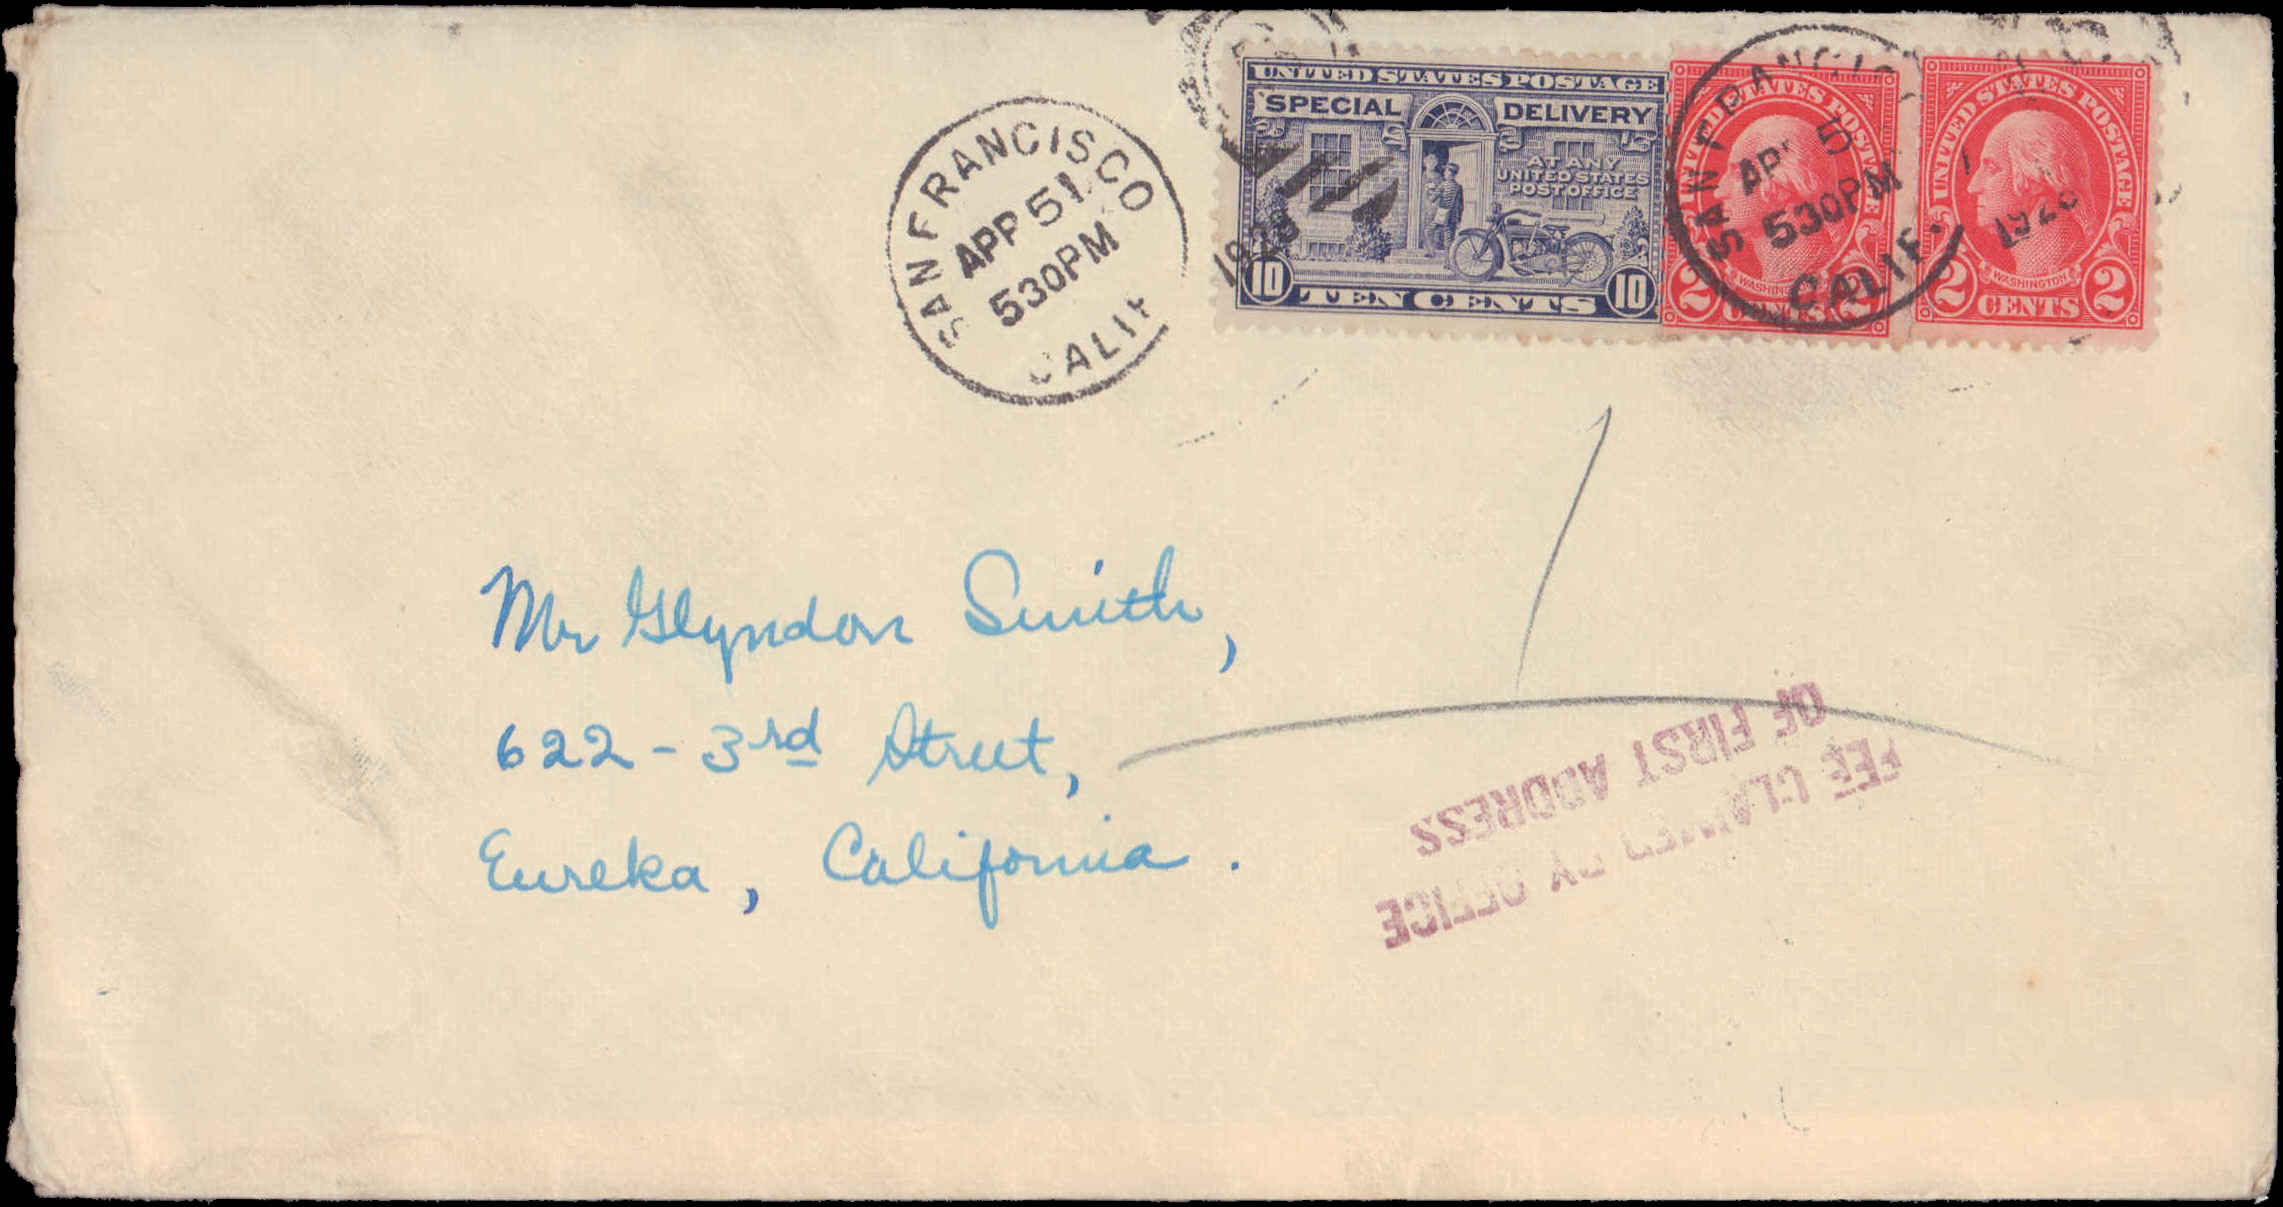 SAN FRANCISCO
APR 5 1
5 30 PM
CALIF
1928
UNITED STATES POSTAGE
SPECIAL DELIVERY
AT ANY
UNITED STATES
POST OFFICE
10 TEN CENTS 10
SAN FRANCISCO
APR 5
5 30 PM
CALIF.
UNITED STATES POSTAGE
WASHINGTON
2 CENTS 2
UNITED STATES POSTAGE
WASHINGTON
2 CENTS 2
Mr Glyndon Smith,
622 - 3rd Street,
Eureka, California.
FEE CLAIMED BY OFFICE
OF FIRST ADDRESS